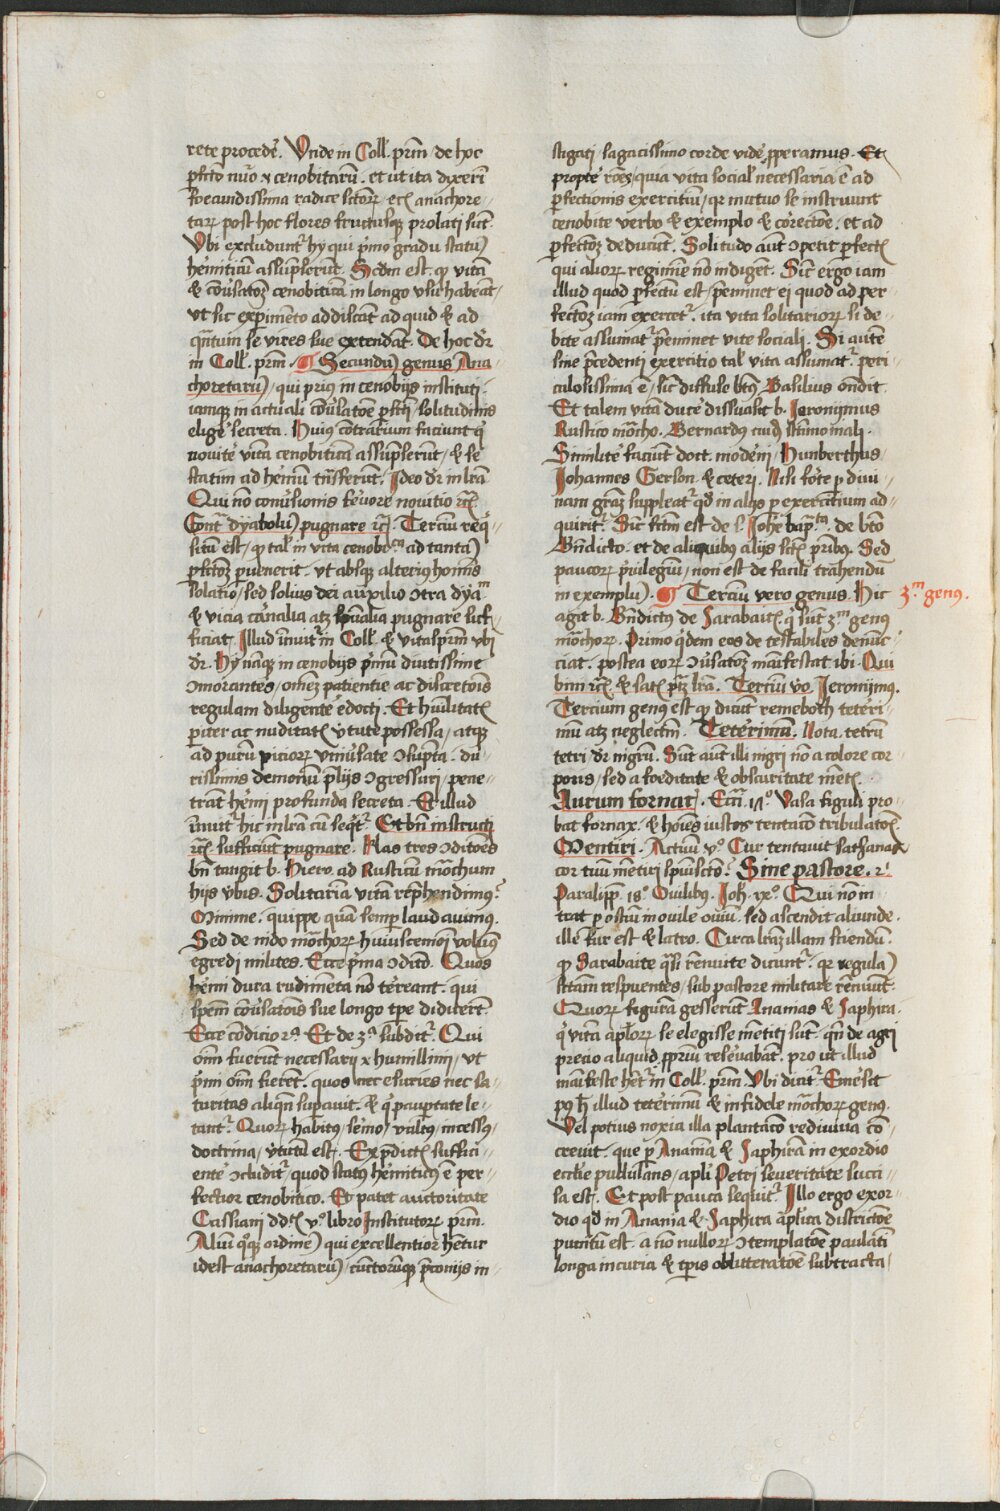 rete procedẽ. Vnde in Coll. prm̃ / de hoc
ꝑfc̃o nũo ⁊ cenobitarũ. et ut ita dixerĩ
foecundissima radice sc̃torꝝ ec̃ anachore-
tarꝝ post hoc flores fructusqꝫ prolati sũt.
Vbi excludunt̃ hy qui p̃mo gradu statũ
hẽmiticũ assũpserũt. Scd̃m est. ꝙ vitã
& cõũsatõꝫ cenobiticã in longo vsu habeãt /
vt sic exꝑimẽto addiscãt ad quid & ad
qũtum se vires sue extendãt. De hoc dr̃
in Coll. prm̃. ¶ Secundũ genus Ana-
choretarũ / qui priꝰ in cenobijs instituti.
iamqꝫ in actuali cõũsatõe ꝑfcti / solitudinis
eligẽ secreta. Huiꝰ cõtrarium faciunt q̃
nouitẽ vitã cenobiticã assũpserũt / & se
statim ad hẽmũ trãsferũt. Ideo dr̃ in lr̃a
Qui nõ conũsionis feruore nouitio ⁊c̃.
Cont̃ dyabolũ pugnare ⁊c̃. Terciũ req̃-
situ est / ꝙ tal' in vita cenobi.ᶜᵃ ad tantã
ꝑfctõꝫ ꝑuenerit. vt absqꝫ alteriꝰ hoĩnis
solatio / sed solius dei auxilio ꝯtra dyã.ᵐ
& vicia carnalia atqꝫ spũalia pugnare suf-
ficiat. Illud ĩnuit̃ in Coll. & vitaspr̃m vbi
dr̃. Hy nãqꝫ in cenobijs p̃mũ diutissime
ꝯmorantes / om̃eꝫ patientie ac discretõis
regulam diligentẽ edocti. Et hũilitatẽ
ꝑiter ac nuditatẽ v̾tute possessa / atqꝫ
ad purũ viciorꝝ vniũsitate ꝯsũpta. du-
rissimis demonũ p̃lijs ꝯgressuri / pene-
trãt hẽmi profunda secreta. Et illud
ĩnuit̃ hic in lr̃a cũ seqt̃. Et bñ instructi
⁊c̃ sufficiũt pugnare. Has tres ꝯditõẽs
bñ tangit b. Hiero. ad Rusticũ mõchum
hijs v̾bis. Solitariã vitã rep̃hendimꝰ?
Minime. quippe quã semꝑ laudauimꝰ.
Sed de nido mõchorꝝ huiuscemõi volumꝰ
egredi milites. Ecce p̃ma ꝯditio. Quos
hẽmi dura rudimẽta nõ tẽreant. qui
spem̃ cõũsatõis sue longo tp̃e didicerĩt.
Ecce cõdicio 2ᵃ. Et de 3ᵃ subdit̃. Qui
oĩm fuerũt necessarij ⁊ humillimi / vt
p̃mi oĩm fierẽt. quos nec esuries nec sa-
turitas aliqñ suꝑauit. & q̃ pauꝑtate le-
tant̃. Quorꝝ habitus / sẽmo / vultꝰ / incessꝰ /
doctrina / v̾tutũ est. Exp̃dictẽ suffici-
entẽ ꝯcludit̃ / quod statꝰ hẽmiticꝰ ẽ per-
fectior cenobitico. Et patet auctoritate
Cassiani dd.ᵗ vᵒ libro Institutorꝝ prm̃.
Aliũ qꝫ ordinẽ qui excellentior hẽtur
idest anachoretarũ / cunctorũqꝫ p̃conijs in-
stigati / sagacissimo corde vidẽ ꝓperamus. Et
proptẽ rõeꝫ / quia vita social' necessaria ẽ ad
ꝑfectionis exercitiũ / qr mutuo se instruunt
cenobite verbo & exemplo & corectõe. et ad
ꝑfectõꝫ deducũt. Solitudo aũt ꝯpetit ꝑfectẽ
qui aliorꝝ regimine nõ indigẽt. Sic ergo iam
illud quod ꝑfectũ est / p̃eminet ei quod ad per-
fectõꝫ iam exercet̃. ita vita solitariorꝝ si de-
bite assumat̃ p̃eminet vite sociali. Si autẽ
sine p̃cedenti exercitio tal' vita assumat̃. peri-
culosissima ẽ / sic̃ diffuse btũs Basilius õndit.
Et talem vitã durẽ dissuasit b. Ieronijmus
Rustico mõcho. Bernardꝰ cuidã sc̃timoniali.
Similitẽ faciũt doct. modẽni / Hunberthus /
Johannes Gerson & ceteri. Nisi fõte ꝑ diui-
nam gr̃am suppleat̃ qd̃ in alijs ꝑ exercitium ad-
quirit̃. Sic fc̃m est de s. Johẽ bap.ᵗᵃ. de btõ
Bñdicto. et de aliquibꝰ alijs sc̃tẽ pr̃ibꝰ. Sed
paucorꝝ p̃uilegiũ / non est de facili trahendũ
in exemplũ. ¶ Terciũ vero genus. Hic
3.ᵐ genꝰ.
agit b. Bñdictꝰ de Sarabaitẽ. q̃ sũt 3.ᵐ genꝰ
mõchorꝝ. Primo q̃dem eos detestabiles denũc-
ciat. postea eorꝝ ꝯũsatõꝫ mãifestat ibi. Qui
bini ⁊c̃. & satẽ ptꝫ lr̃a. Terciũ vo. Ieronijmꝰ.
Tercium genꝰ est qd̃ dicũt remeboth tetẽri-
mũ atqꝫ neglectũ. Tetẽrimũ. Nota. tetrũ
tetri dr̃ nigrũ. Sũt aũt illi nigri nõ a colore cor-
poris / sed a foeditate & obscuritate mẽtẽ.
Aurum fornacẽ. Ecc̃i. 27ᵒ. Vasa figuli pro-
bat fornax. & hoĩes iustos tentatio tribulatõẽ.
Mentiri. Actuũ vᵒ. Cur tentauit sathanas
cor tuũ mẽtiri spũi sc̃to? Sine pastore. 2.
Paralipp̃. 18ᵒ. Ouilibꝰ. Joh. xᵒ. Qui nõ in-
trat ꝑ ostiũ in ouile ouiũ. sed ascendit aliunde.
ille fur est & latro. Circa lr̃aꝫ illam sciendũ.
ꝙ Sarabaite q̃si rẽnuite dicunt̃. qr regulã
sc̃tam respuentes / sub pastore militare rẽnuũt.
Quorꝝ figurã gesserũt Ananias & Saphira.
q̃ vitã ap̃lorꝝ se elegisse mẽtiti sũt. qñ de agri
precio aliquid ꝓpriũ resẽuabãt. pro ut illud
mãifeste hẽt̃ in Coll. prm̃. Vbi dicit̃. Emẽsit
pꝰ h̃ illud tetẽrimũ & infidele mõchorꝝ genꝰ.
Vel potius noxia illa plantatio rediuiua cõ-
creuit. que ꝑ Ananiã & Saphirã in exordio
eccl̃ie pululans / ap̃li Petri seueritate succi-
sa est. Et post pauca sequit̃. Illo ergo exor-
dio qd̃ in Anania & Saphira ap̃lica districtõe
punitũ est. a nõ nullorꝝ ꝯtemplatõe paulati
longa incuria & tp̃is oblitteratõe subtracta /